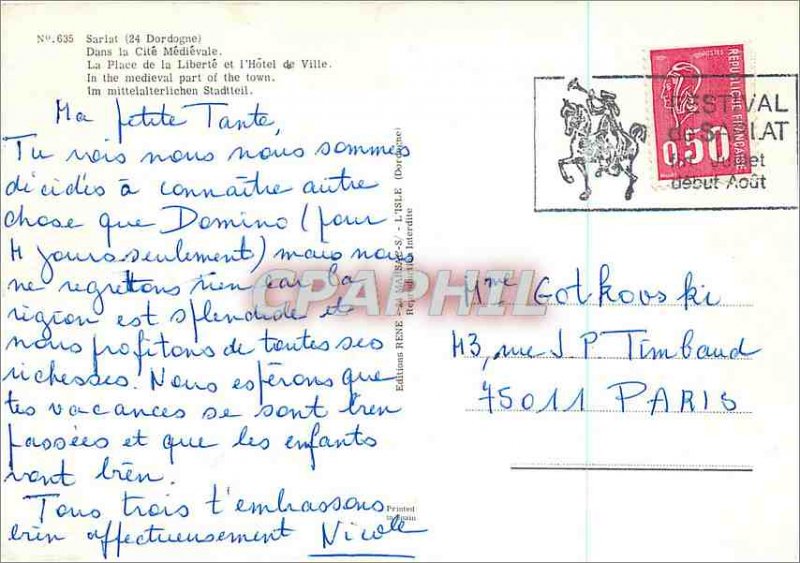 No. 635 Sarlat (24 Dordogne)
Dans la Cité Médiévale.
La Place de la Liberté et l'Hôtel de Ville.
In the medieval part of the town.
Im mittelalterlichen Stadtteil.
Ma petite Tante,
Tu vois nous nous sommes
décidés à connaître autre
chose que Domino (pour
4 jours seulement) mais nous
ne regrettons rien car la
région est splendide et
nous profitons de toutes ses
richesses. Nous espérons que
tes vacances se sont bien
passées et que les enfants
vont bien.
Tous trois t'embrassons
bien affectueusement Nicole
Editions RENE - MARSAC-S/-L'ISLE (Dordogne)
Reproduction Interdite
Printed
in Spain
REPUBLIQUE FRANÇAISE
0,50
FESTIVAL
de SARLAT
Juillet
début Août
Mme Gotkovski
43, rue J P Timbaud
75011 PARIS
CPAPHIL